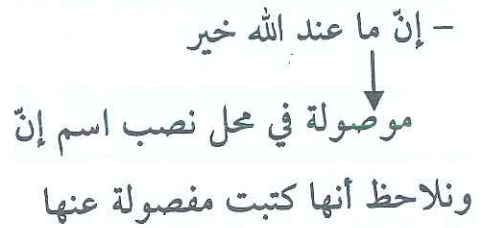 – إنّ ما عند الله خير
موصولة في محل نصب اسم إنّ
ونلاحظ أنها كتبت مفصولة عنها